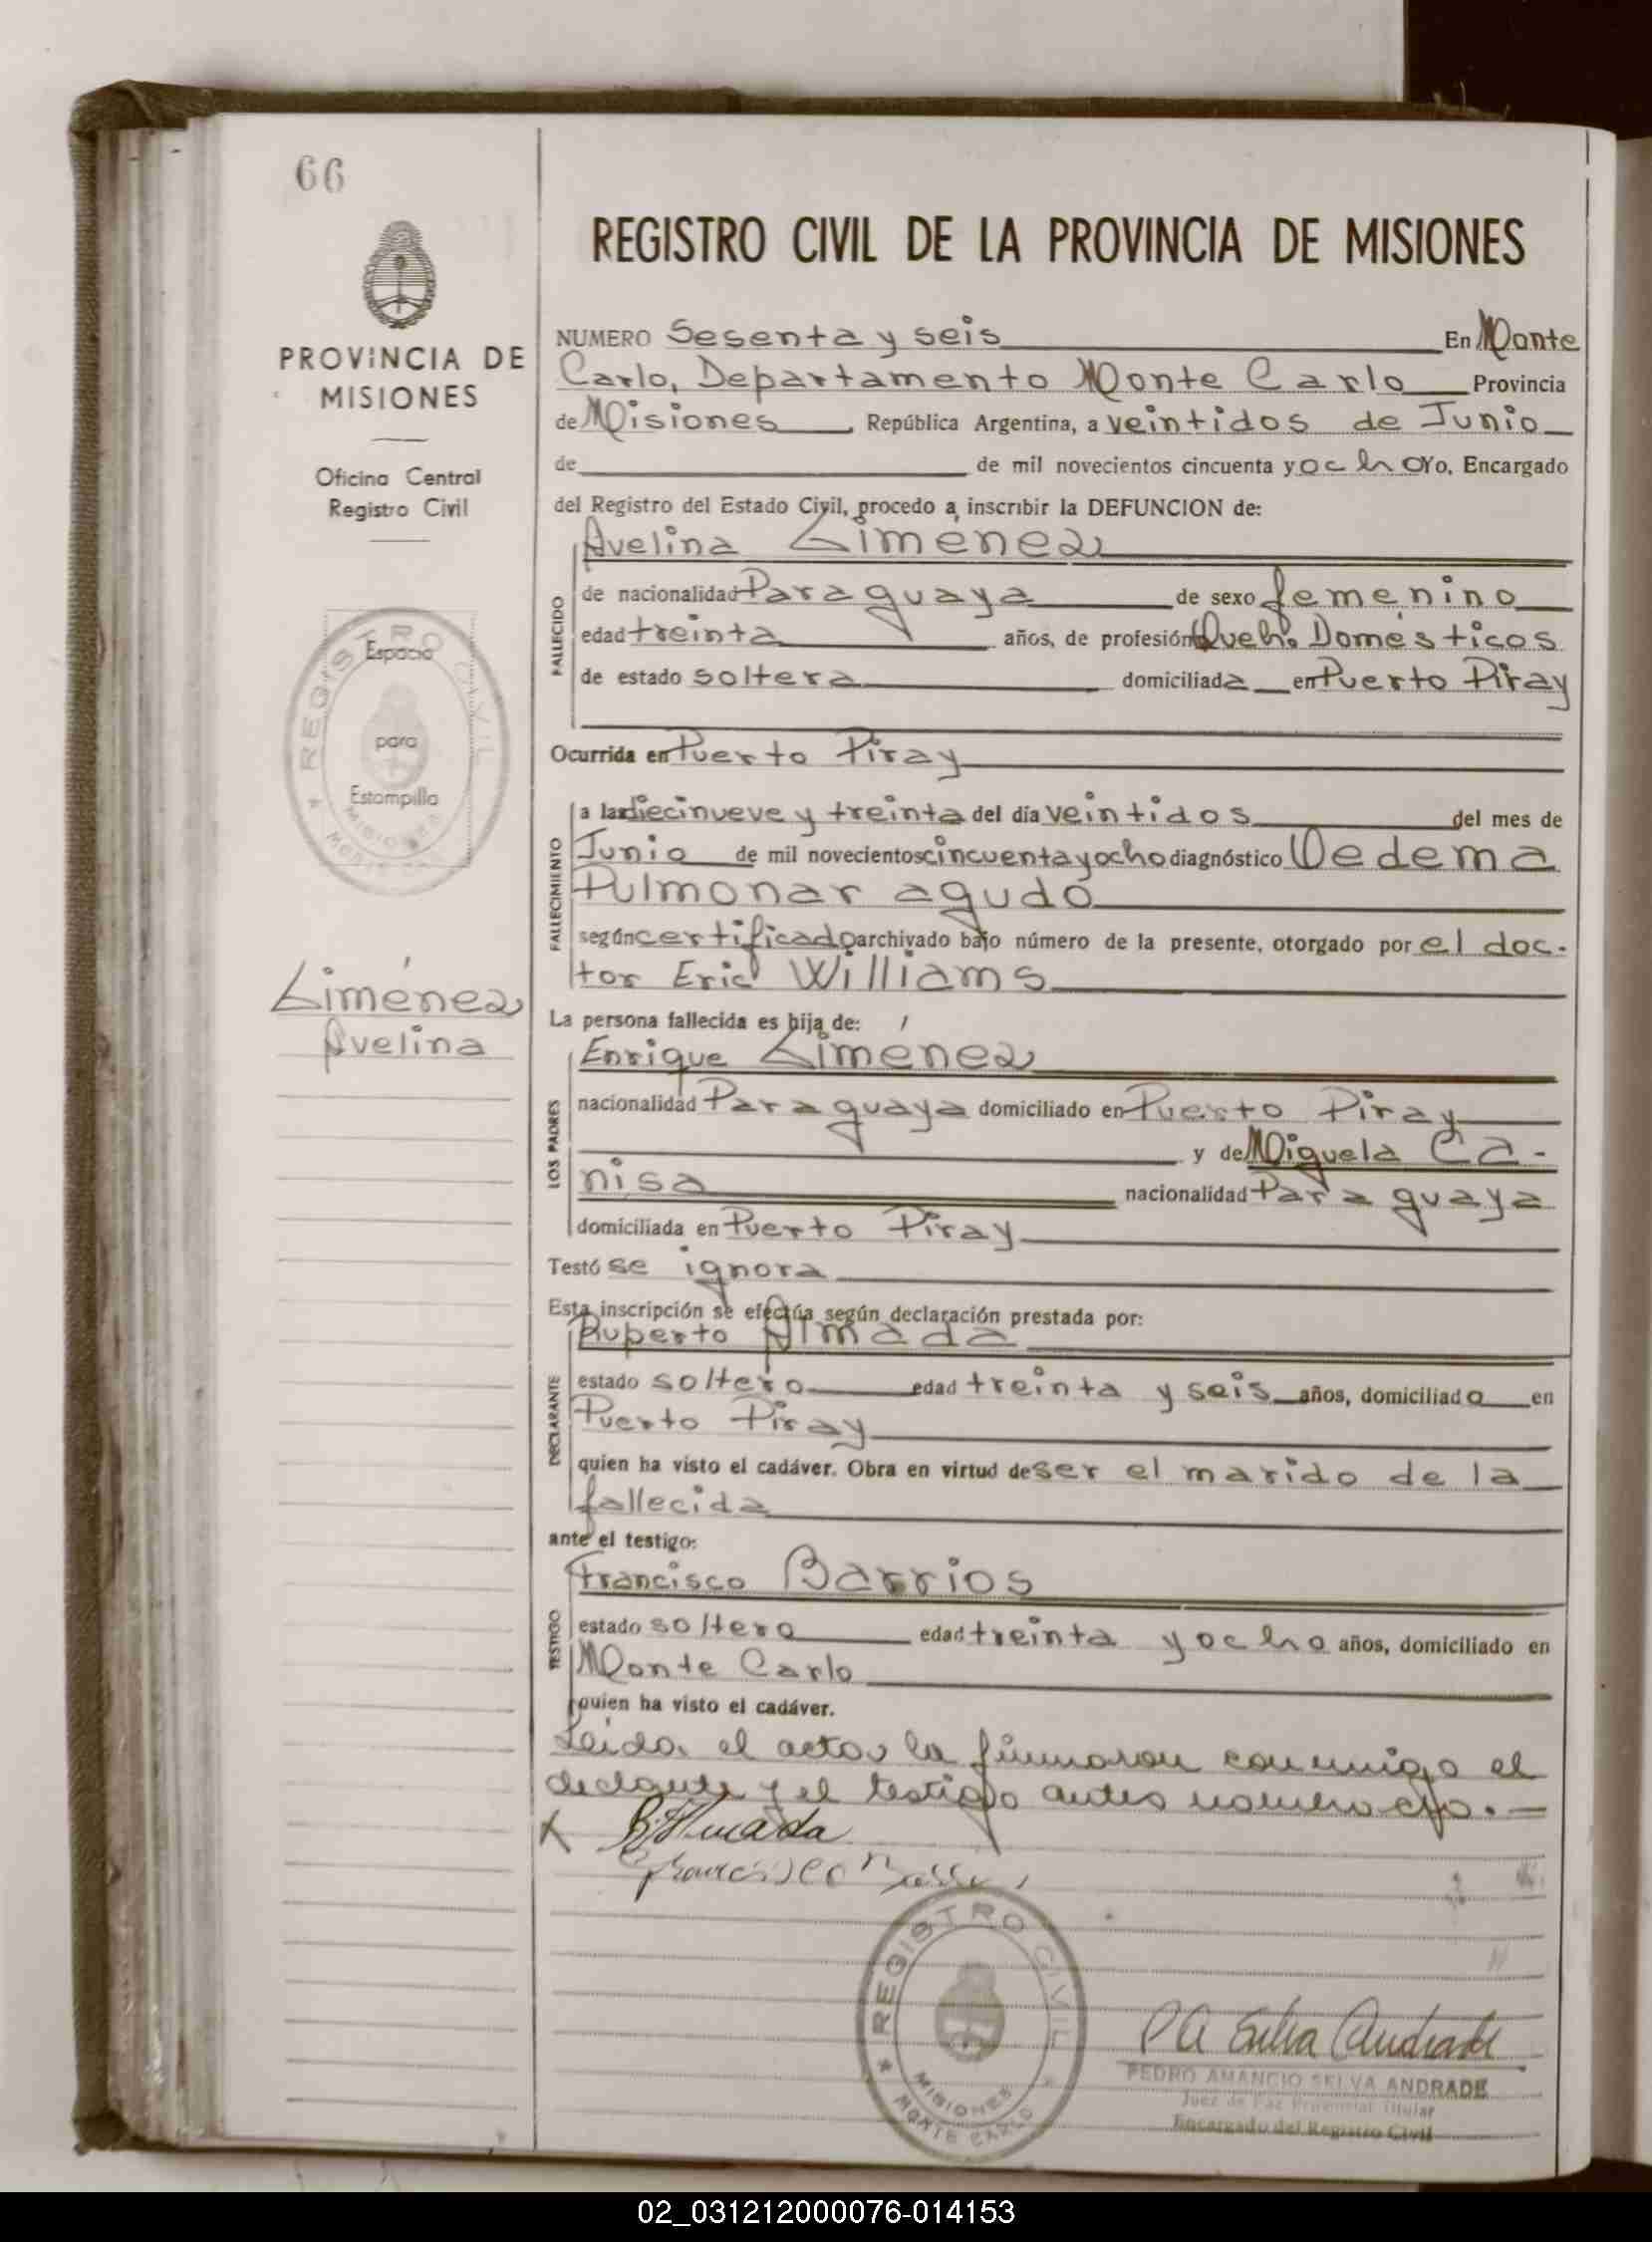 66
PROVINCIA DE
MISIONES
Oficina Central
Registro Civil
REGISTRO CIVIL
Espacio
para
Estampilla
MISIONES
Giménez
Avelina
REGISTRO CIVIL DE LA PROVINCIA DE MISIONES
NUMERO Sesenta y seis En Monte
Carlo, Departamento Monte Carlo Provincia
de Misiones, República Argentina, a veintidos de Junio
de de mil novecientos cincuenta y ocho Yo, Encargado
del Registro del Estado Civil, procedo a inscribir la DEFUNCION de:
Avelina Giménez
FALLECIDO
de nacionalidad Paraguaya de sexo femenino
edad treinta años, de profesión Queh. Domésticos
de estado soltera domiciliada en Puerto Piray
Ocurrida en Puerto Piray
FALLECIMIENTO
a las diecinueve y treinta del día veintidos del mes de
Junio de mil novecientos cincuenta y ocho diagnóstico Oedema
Pulmonar agudo
según certificado archivado bajo número de la presente, otorgado por el doc-
tor Eric Williams
La persona fallecida es hija de:
LOS PADRES
Enrique Giménez
nacionalidad Paraguaya domiciliado en Puerto Piray
y de Miguela Ca-
nisa nacionalidad Paraguaya
domiciliada en Puerto Piray
Testó se ignora
Esta inscripción se efectúa según declaración prestada por:
DECLARANTE
Ruperto Almada
estado soltero edad treinta y seis años, domiciliado en
Puerto Piray
quien ha visto el cadáver. Obra en virtud de ser el marido de la
fallecida
ante el testigo:
TESTIGO
Francisco Barrios
estado soltero edad treinta y ocho años, domiciliado en
Monte Carlo
quien ha visto el cadáver.
Leida el acta, la firmaron conmigo el
declante y el testigo antes
R. Almada
Francisco
REGISTRO CIVIL
MISIONES
MONTE CARLO
P A Selva Andrade
PEDRO AMANCIO SELVA ANDRADE
Juez de Paz Provincial Titular
Encargado del Registro Civil
02_031212000076-014153